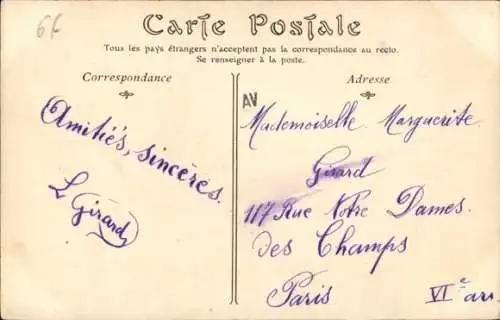 6f
Carte Postale
Tous les pays étrangers n'acceptent pas la correspondance au recto.
Se renseigner à la poste.
Correspondance
Adresse
AV
Amitiés, sincères.
L Girard
Mademoiselle Marguerite
Girard
117 Rue Notre Dames
des Champs
Paris VIe arr